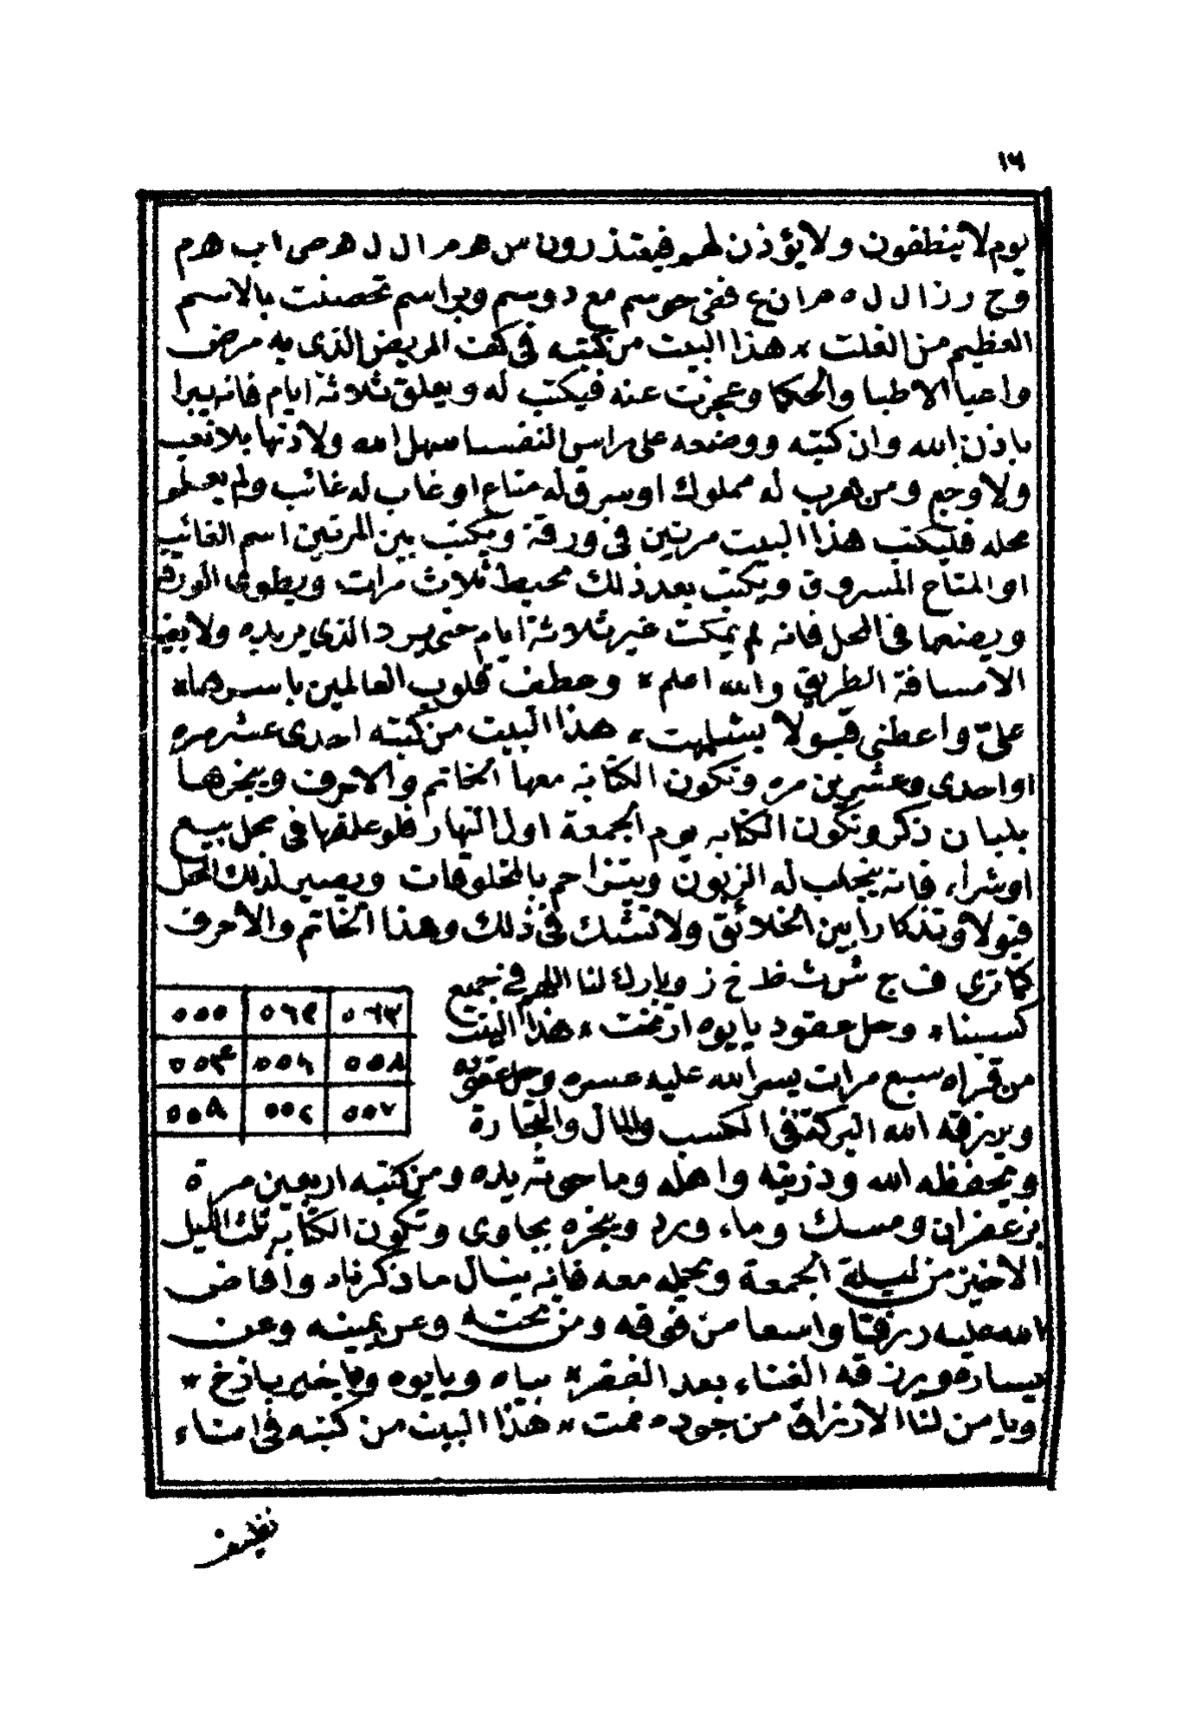 ١٦
يوم لا ينطقون ولا يؤذن لهم فيعتذرون س هر مر ا ل ل هر صى ا ب هرم
وج ر ز ا ل ل ه م ر ا ن ع ففى حوسم مع دوسم وبراسم تحصنت بالاسم
العظيم من الغلت * هذا البيت من كتبه فى كف المريض الذى به مرض
واعيا الاطبا والحكما وعجزت عنه فيكتب له ويعلق ثلاثة ايام فانه يبرا
باذن الله وان كتبه ووضعه على راس النفسا سهل الله ولادتها بلا تعب
ولا وجع ومن هرب له مملوك او سرق له متاع او غاب له غائب ولم يعلم
محله فليكتب هذا البيت مرتين فى ورقة ويكتب بين المرتين اسم الغائب
او المتاع المسروق ويكتب بعد ذلك محيط ثلاث مرات ويطوى الورقه
ويضعها فى المحل فانه لم يمكث غير ثلاثة ايام حتى يرد الذى يريده ولا يغيه
الا مسافة الطريق والله اعلم * وعطف قلوب العالمين باسرها *
علىّ واعطنى قبولا بشلمهت * هذا البيت من كتبه احدى عشر مره
او احدى وعشرين مره وتكون الكتابه معها الخاتم والاحرف ويبخرها
بلبان ذكر وتكون الكتابه يوم الجمعة اول النهار فلو علقها فى محل بيع
او شراء فانه ينجلب له الزبون ويتزاحم بالمخلوقات ويصير لذلك المحل
قبولا وتذكارا بين الخلائق ولا تشك فى ذلك وهذا الخاتم والاحرف
كما ترى ف ج ش ث ظ خ ز وبارك لنا اللهم فى جميع
كسبنا * وحل عقود يا يوه ارمخت * هذا البيت
من قراه سبع مرات يسر الله عليه عسره وحل عقوده
ويرزقه الله البركة فى الكسب والمال والتجارة
٥٦٣ ٥٦٩ ٥٥٥
٥٥٨ ٥٥٦ ٥٥٤
٥٥٧ ٥٥٢ ٥٥٨
ويحفظه الله وذريته واهله وما حوته يده ومن كتبه اربعين مرة
بزعفران ومسك وماء ورد ويبخره بجاوى وتكون الكتابه ثلث الليل
الاخير من ليلة الجمعة ويحمله معه فانه ينال ما ذكرناه وافاض
الله عليه رزقا واسعا من فوقه ومن تحته وعن يمينه وعن
يساره ويرزقه الغناء بعد الفقر * بياه ويا يوه ويا خير باذخ *
ويا من لنا الارزاق من جوده نمت * هذا البيت من كتبه فى اناء
نظيف